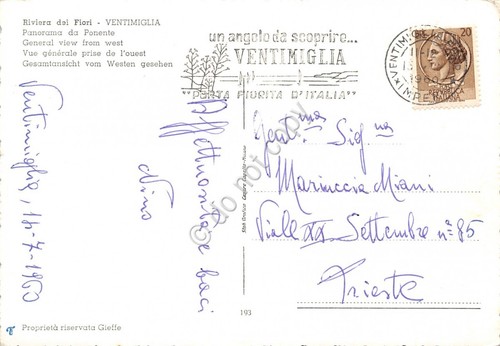 Riviera dei Fiori - VENTIMIGLIA
Panorama da Ponente
General view from west
Vue générale prise de l'ouest
Gesamtansicht vom Westen gesehen
un angolo da scoprire...
VENTIMIGLIA
"PORTA FIORITA D'ITALIA"
VENTIMIGLIA
IMPERIA
20
Ventimiglia, 11-7-1960
Affettuosità e baci
Nino
Gent.ma Sig.na
Mariuccia Miani
Viale XX Settembre n° 85
Trieste
193
Proprietà riservata Gieffe
do not copy